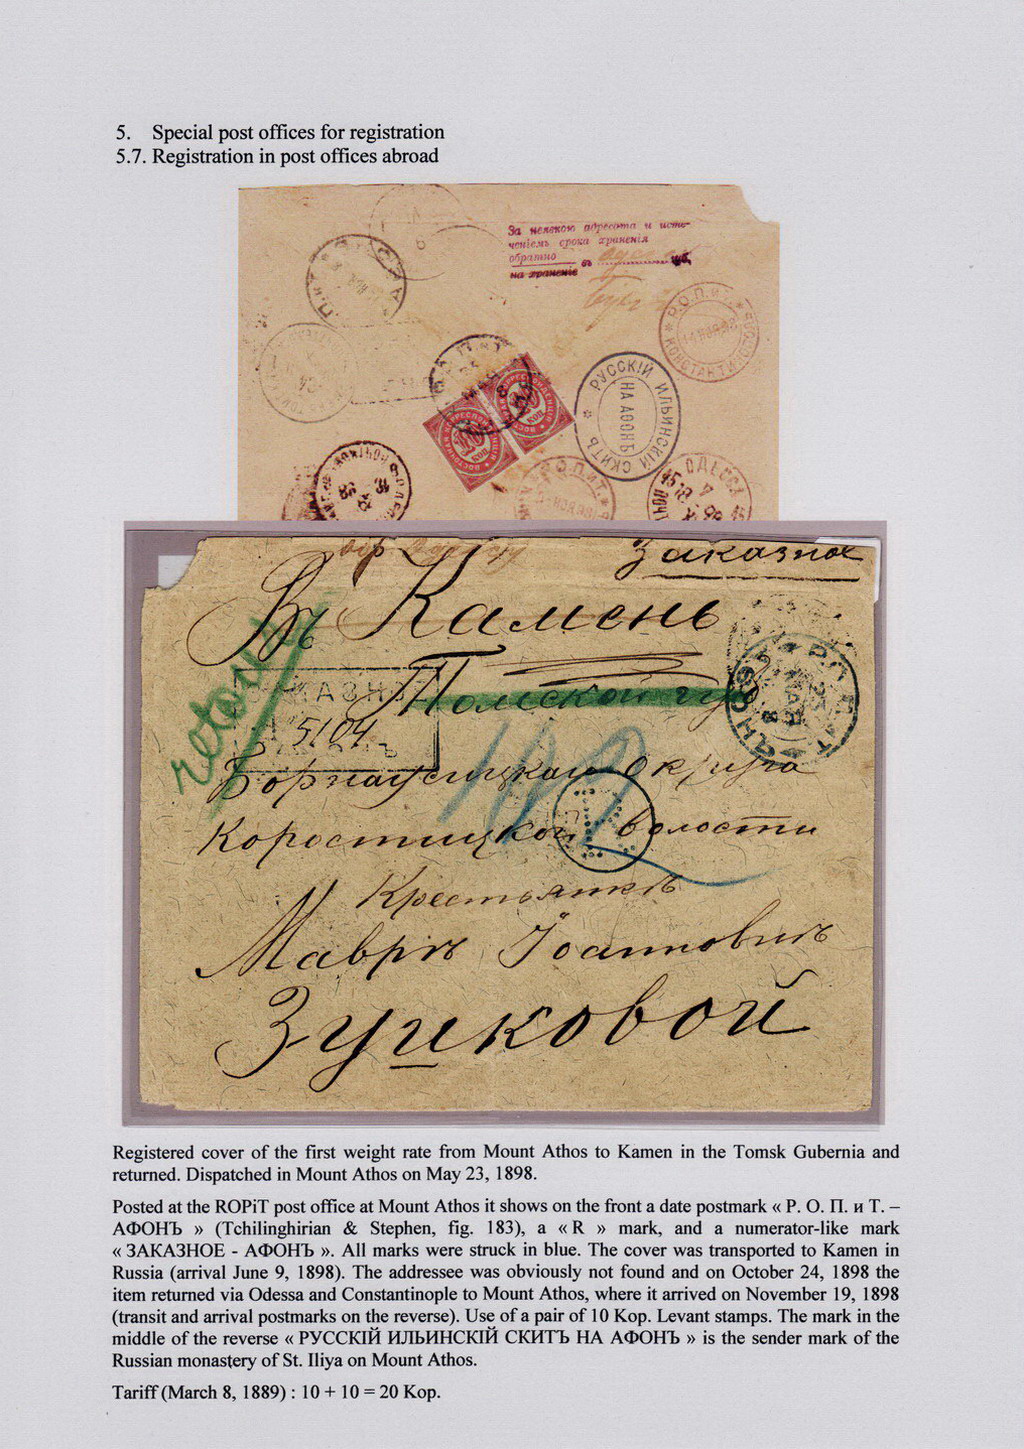 5. Special post offices for registration
5.7. Registration in post offices abroad
За неявкою адресата и исте-
ченіемъ срока храненія
обратно въ губ.
на храненіе
Р.О.П. и Т.
14 НОЯ 98
КОНСТАНТИНОПОЛЬ
РУССКІЙ ИЛЬИНСКІЙ СКИТЪ
НА АѲОНѢ
ВОСТОЧНАЯ КОРРЕСПОНДЕНЦІЯ
10
КОП
ОДЕССА
Заказное
Въ Камень
Томской губ
retour
КАЗН
5104
Р.О.П. и Т.
23
МАЯ
8
102
округа
волости
R
Крестьянкѣ
Маврѣ Іоанновнѣ
Зуйковой
Registered cover of the first weight rate from Mount Athos to Kamen in the Tomsk Gubernia and
returned. Dispatched in Mount Athos on May 23, 1898.
Posted at the ROPiT post office at Mount Athos it shows on the front a date postmark « Р. О. П. и Т. –
АФОНЪ » (Tchilinghirian & Stephen, fig. 183), a « R » mark, and a numerator-like mark
« ЗАКАЗНОЕ - АФОНЪ ». All marks were struck in blue. The cover was transported to Kamen in
Russia (arrival June 9, 1898). The addressee was obviously not found and on October 24, 1898 the
item returned via Odessa and Constantinople to Mount Athos, where it arrived on November 19, 1898
(transit and arrival postmarks on the reverse). Use of a pair of 10 Kop. Levant stamps. The mark in the
middle of the reverse « РУССКІЙ ИЛЬИНСКІЙ СКИТЪ НА АФОНЪ » is the sender mark of the
Russian monastery of St. Iliya on Mount Athos.
Tariff (March 8, 1889) : 10 + 10 = 20 Kop.